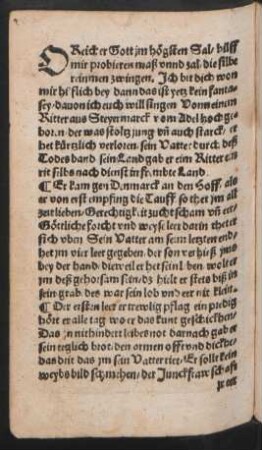 O Reicher Gott jm högsten Sal, hilff
mir probieren maß vnnd zal, die silbe
reinmen zwingen. Ich bit dich won
mir hiflich bey dann das ist yetz kein fanta-
sey, dauon ich euch will singen Vonn einem
Ritter aus Steyermarck vom Adel hochge
born der was stoltz jung vñ auch starck, er
het kürtzlich verloren, sein Vatter durch deß
Todes band sein Land gab er eim Ritter ein
rit selbs nach dienst in frembte Land.
¶ Er kam gen Denmarck an den Hoff, als
er von erst empfing die Tauff so thet jm all
zeit lieben, Gerechtigkeit zucht scham vñ eer
Göttliche forcht vnd weyse leer darin thet er
sich vben Sein Vatter am seim letzten end,
het jm vier leer gegeben. der son verhieß jms
bey der hand, dieweil er het sein leben wolt er
jm deß gehorsam sein, dz hielt er stets biß in
sein grab des war sein lob vnd eer nit klein.
¶ Der ersten leer er trewlig pflag ein predig
hört er alle tag wo er das kunt geschicken,
Das jm nit hindert leibes not darnach gab er
sein teglich brot, den armen offt vnd dicke,
das drit das jm sein Vatter riet, Er solt kein
weybs bild schmehen, der Junckfrawschafft